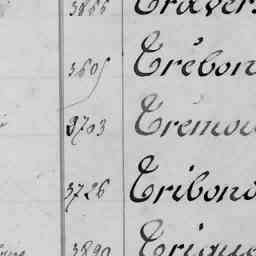 3866 Traver
3605 Trébon
3703 Trémou
3726 Tribono
3890 Trique